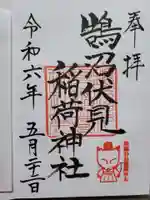 奉拝
鵠沼伏見
稲荷神社
令和六年
五月二十二日